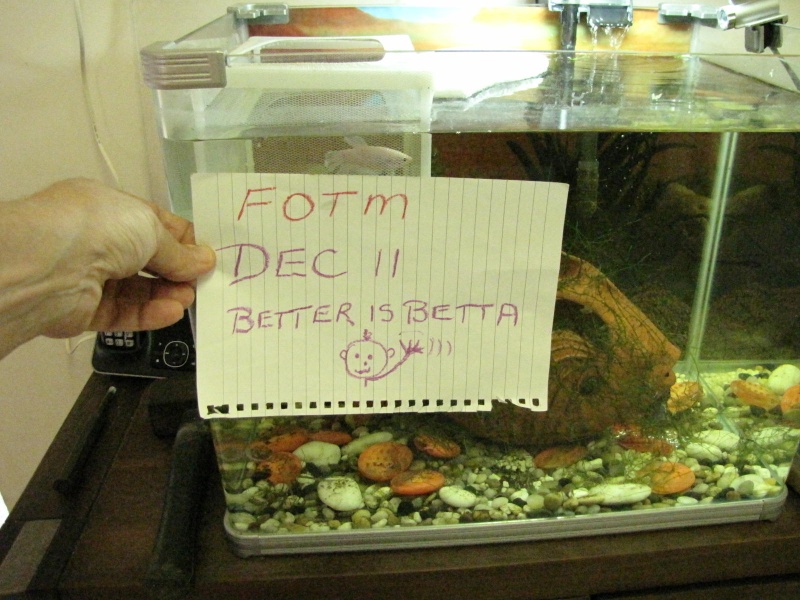 FOTM
DEC 11
BETTER IS BETTA